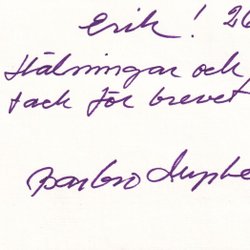 Erik! 26
Hälningar och
tack för brevet
Barbro